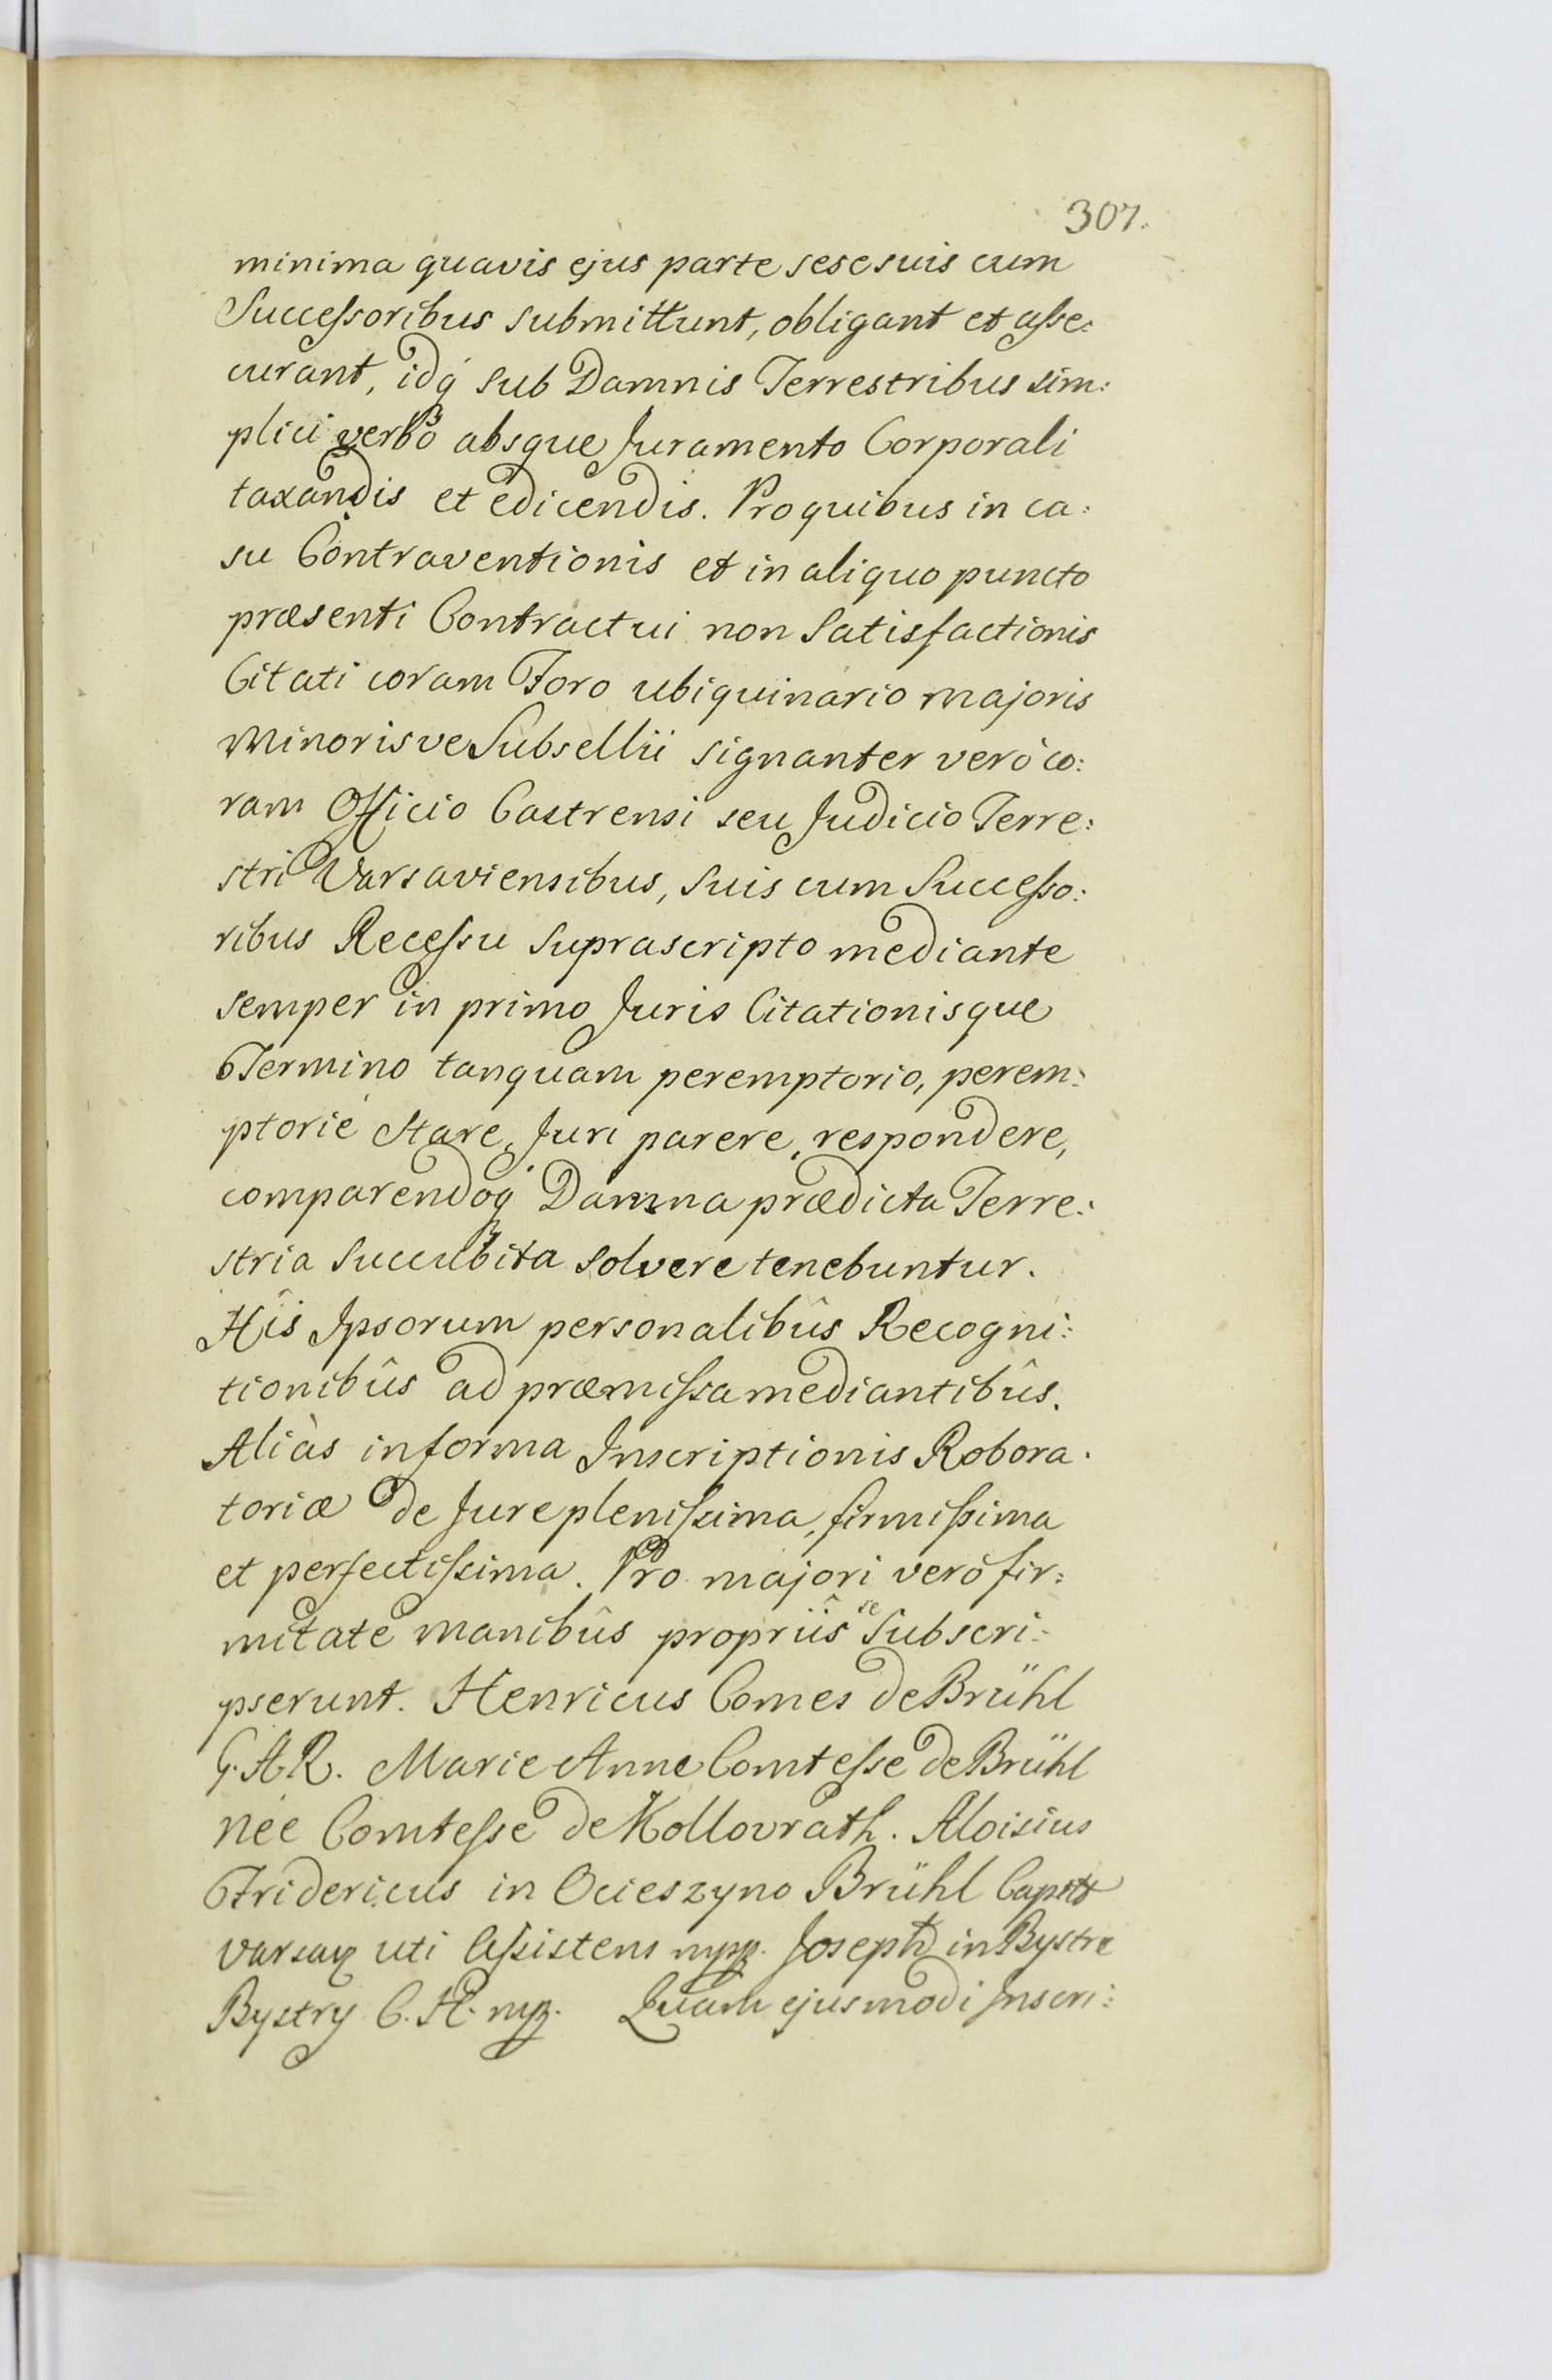 307.
minima quavis ejus parte sese suis cum
Successoribus submittunt, obligant et asse:
curant, idq́ sub Damnis Terrestribus sim:
plici verbo absque Juramento Corporali
taxandis et edicendis. Pro quibus in ca:
su Contraventionis et in aliquo puncto
præsenti Contractui non Satisfactionis
Citati coram Foro ubiquinario majoris
minorisve Subsellii signanter verò co:
ram Officio Castrensi seu Judicio Terre:
stri Varsaviensibus, suis cum Successo:
ribus Recessu suprascripto mediante
semper in primo Juris Citationisque
Termino tanquam peremptorio, perem:
ptorié stare, Juri parere, respondere,
comparendoq́ Damna prædicta Terre:
stria succubita solvere tenebuntur.
Hîs Ipsorum personalibûs Recogni:
tionibûs ad præmissa mediantibûs.
Aliàs in forma Inscriptionis Robora:
toriæ de Jure plenissima, firmissima
et perfectissima. Pro majori verò fir:
mitate manibûs propriîs se Subscri:
pserunt. Henricus Comes de Brühl
G. A R. Marie Anne Comtesse de Brühl
née Comtesse de Kollovrath. Aloisius
Fridericus in Ocieszyno Brühl Captts
uti Assistens mpp. Joseph in Bystre
Bystry C. H. mp. Quam ejusmodi Inscri: